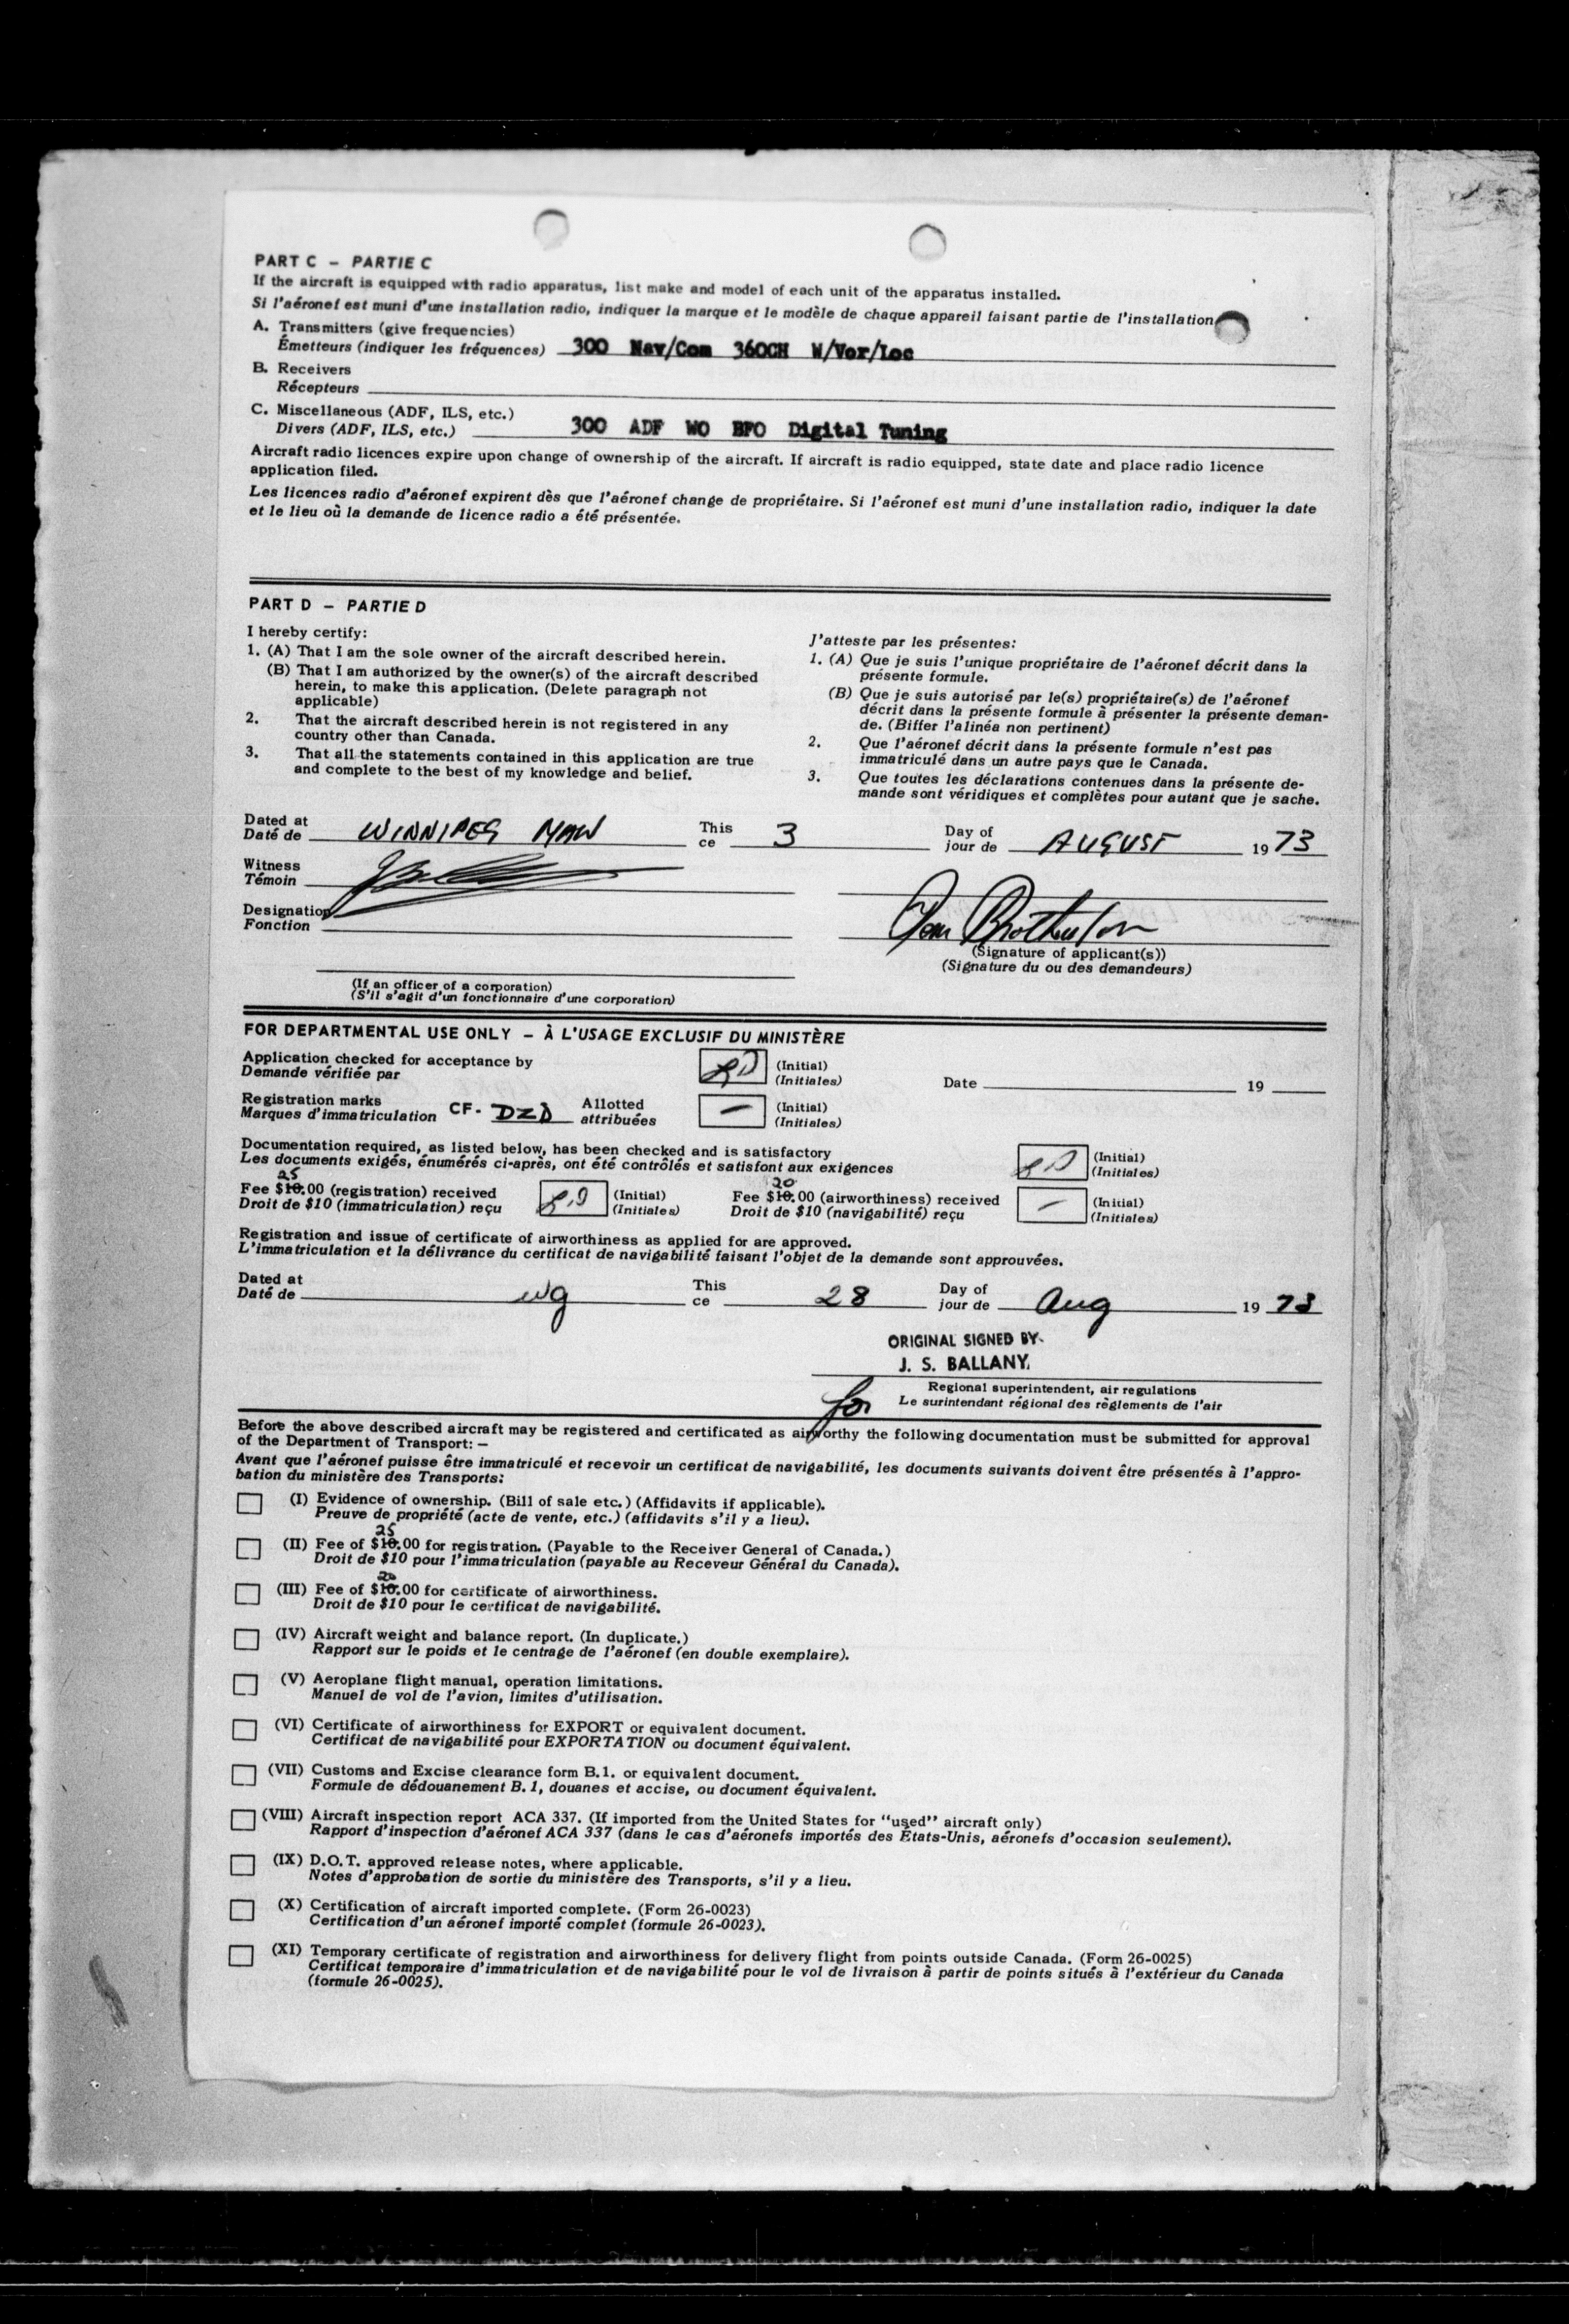 PART C – PARTIE C
If the aircraft is equipped with radio apparatus, list make and model of each unit of the apparatus installed.
Si l'aéronef est muni d'une installation radio, indiquer la marque et le modèle de chaque appareil faisant partie de l'installation
A. Transmitters (give frequencies)
Émetteurs (indiquer les fréquences) 300 Nav/Com 360CH W/Vor/Loc
B. Receivers
Récepteurs
C. Miscellaneous (ADF, ILS, etc.)
Divers (ADF, ILS, etc.) 300 ADF WO BFO Digital Tuning
Aircraft radio licences expire upon change of ownership of the aircraft. If aircraft is radio equipped, state date and place radio licence
application filed.
Les licences radio d'aéronef expirent dès que l'aéronef change de propriétaire. Si l'aéronef est muni d'une installation radio, indiquer la date
et le lieu où la demande de licence radio a été présentée.
PART D – PARTIE D
I hereby certify:
1. (A) That I am the sole owner of the aircraft described herein.
(B) That I am authorized by the owner(s) of the aircraft described
herein, to make this application. (Delete paragraph not
applicable)
2. That the aircraft described herein is not registered in any
country other than Canada.
3. That all the statements contained in this application are true
and complete to the best of my knowledge and belief.
J'atteste par les présentes:
1. (A) Que je suis l'unique propriétaire de l'aéronef décrit dans la
présente formule.
(B) Que je suis autorisé par le(s) propriétaire(s) de l'aéronef
décrit dans la présente formule à présenter la présente deman-
de. (Biffer l'alinéa non pertinent)
2. Que l'aéronef décrit dans la présente formule n'est pas
immatriculé dans un autre pays que le Canada.
3. Que toutes les déclarations contenues dans la présente de-
mande sont véridiques et complètes pour autant que je sache.
Dated at This Day of
Daté de WINNIPEG MAN ce 3 jour de AUGUST 19 73
Witness
Témoin
Designation
Fonction
Tom Brotherston
(Signature of applicant(s))
(Signature du ou des demandeurs)
(If an officer of a corporation)
(S'il s'agit d'un fonctionnaire d'une corporation)
FOR DEPARTMENTAL USE ONLY – À L'USAGE EXCLUSIF DU MINISTÈRE
Application checked for acceptance by (Initial)
Demande vérifiée par (Initiales) Date 19
Registration marks Allotted (Initial)
Marques d'immatriculation CF- DZD attribuées – (Initiales)
Documentation required, as listed below, has been checked and is satisfactory (Initial)
Les documents exigés, énumérés ci-après, ont été contrôlés et satisfont aux exigences (Initiales)
25 20
Fee $10.00 (registration) received (Initial) Fee $10.00 (airworthiness) received – (Initial)
Droit de $10 (immatriculation) reçu (Initiales) Droit de $10 (navigabilité) reçu (Initiales)
Registration and issue of certificate of airworthiness as applied for are approved.
L'immatriculation et la délivrance du certificat de navigabilité faisant l'objet de la demande sont approuvées.
Dated at This Day of
Daté de wg ce 28 jour de Aug 19 73
ORIGINAL SIGNED BY
J. S. BALLANY
for Regional superintendent, air regulations
Le surintendant régional des règlements de l'air
Before the above described aircraft may be registered and certificated as airworthy the following documentation must be submitted for approval
of the Department of Transport: –
Avant que l'aéronef puisse être immatriculé et recevoir un certificat de navigabilité, les documents suivants doivent être présentés à l'appro-
bation du ministère des Transports:
(I) Evidence of ownership. (Bill of sale etc.) (Affidavits if applicable).
Preuve de propriété (acte de vente, etc.) (affidavits s'il y a lieu).
25
(II) Fee of $10.00 for registration. (Payable to the Receiver General of Canada.)
Droit de $10 pour l'immatriculation (payable au Receveur Général du Canada).
20
(III) Fee of $10.00 for certificate of airworthiness.
Droit de $10 pour le certificat de navigabilité.
(IV) Aircraft weight and balance report. (In duplicate.)
Rapport sur le poids et le centrage de l'aéronef (en double exemplaire).
(V) Aeroplane flight manual, operation limitations.
Manuel de vol de l'avion, limites d'utilisation.
(VI) Certificate of airworthiness for EXPORT or equivalent document.
Certificat de navigabilité pour EXPORTATION ou document équivalent.
(VII) Customs and Excise clearance form B.1. or equivalent document.
Formule de dédouanement B.1, douanes et accise, ou document équivalent.
(VIII) Aircraft inspection report ACA 337. (If imported from the United States for "used" aircraft only)
Rapport d'inspection d'aéronef ACA 337 (dans le cas d'aéronefs importés des États-Unis, aéronefs d'occasion seulement).
(IX) D.O.T. approved release notes, where applicable.
Notes d'approbation de sortie du ministère des Transports, s'il y a lieu.
(X) Certification of aircraft imported complete. (Form 26-0023)
Certification d'un aéronef importé complet (formule 26-0023).
(XI) Temporary certificate of registration and airworthiness for delivery flight from points outside Canada. (Form 26-0025)
Certificat temporaire d'immatriculation et de navigabilité pour le vol de livraison à partir de points situés à l'extérieur du Canada
(formule 26-0025).